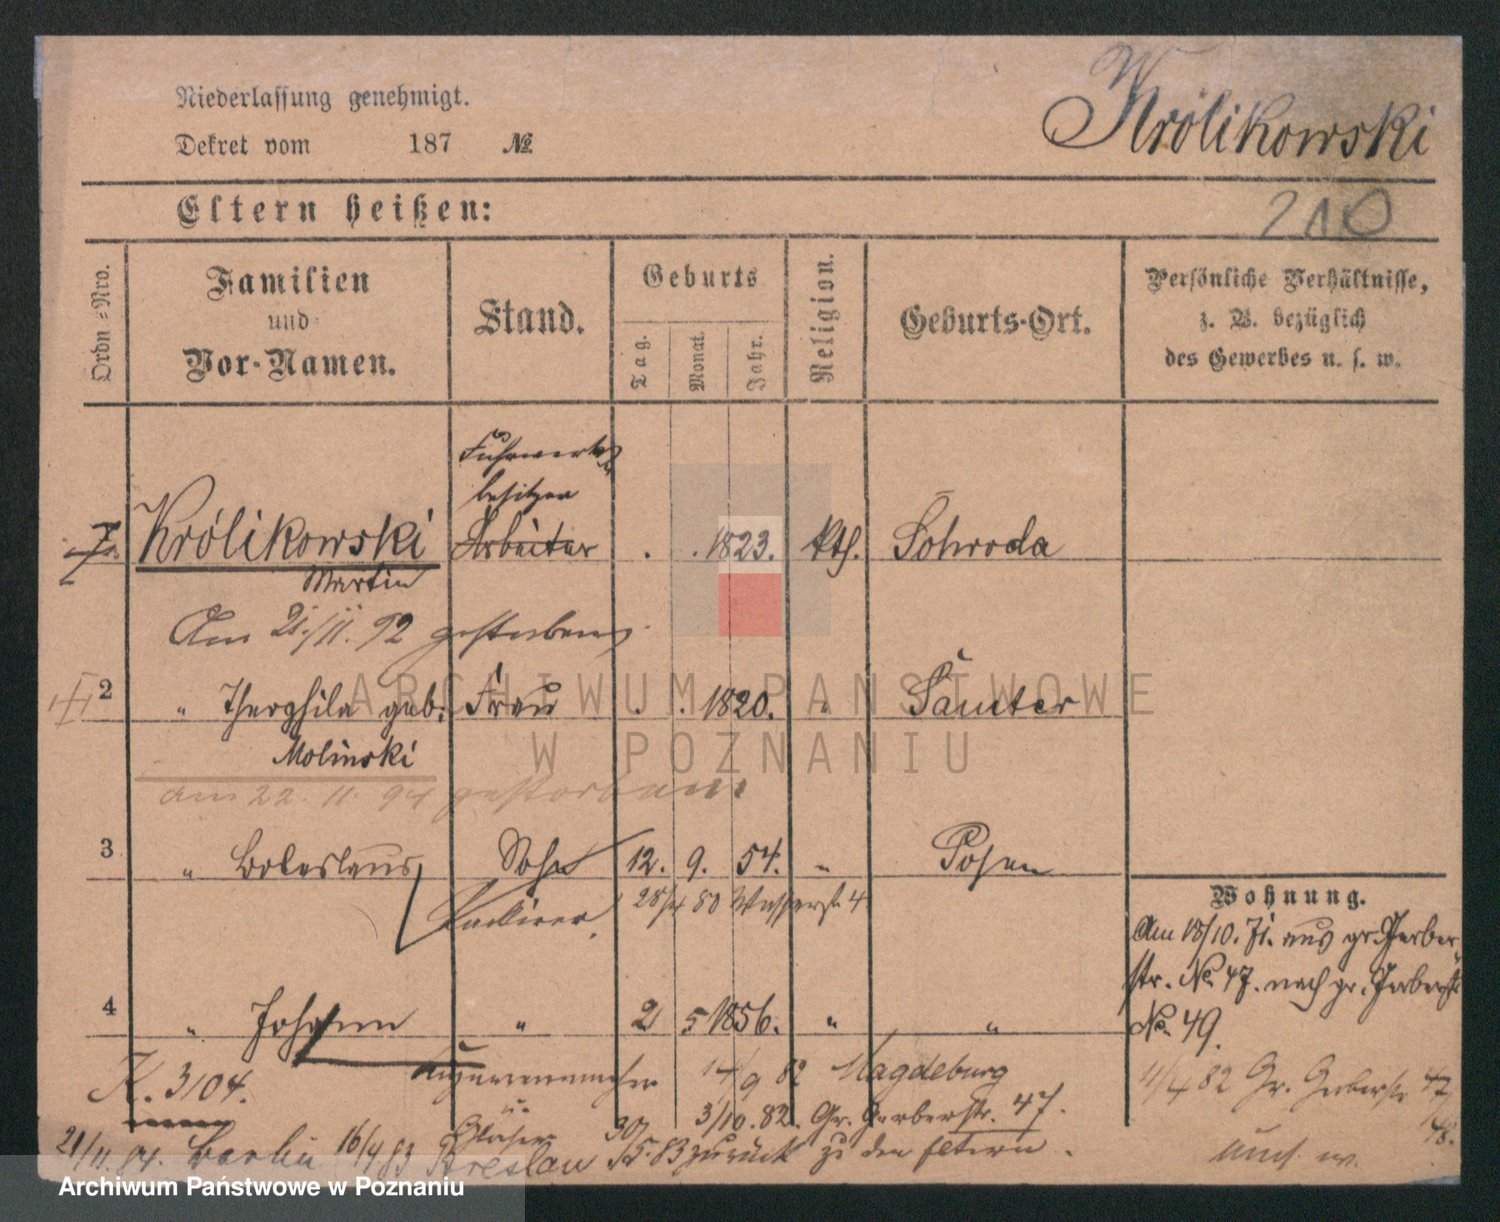 Niederlassung genehmigt.
Dekret vom 187 №
Królikowski
Eltern heißen:
210
Ordn=Nro.
Familien
und
Vor-Namen.
Stand.
Geburts
Tag.
Monat.
Jahr.
Religion.
Geburts-Ort.
Persönliche Verhältnisse,
z. B. bezüglich
des Gewerbes u. s. w.
Fuhrwerks
besitzer
Królikowski Arbeiter . . 1823. kth. Schroda
Martin
Am 21./11. 92 gestorben
2 " Theophila geb. Frau . . 1820. " Samter
Molinski
am 22. 11. 94 gestorben
3 " Boleslaus Sohn 12. 9. 54. " Posen
28/4 80 Wasserstr 4
Wohnung.
Am 18/10. 71. aus gr. Gerber-
str. No. 47. nach gr. Gerberstr
No. 49.
4 " Johann " 2 5 1856. " "
K. 3104.
Cigarrenmacher 14/9 82 Magdeburg
11/4 82 Gr. Gerberstr 47
u. Glaser 3/10. 82. Gr. Gerberstr. 47.
48.
21/11. 84. Berlin 16/4 83 Breslau 30/5. 83 zurück zu den Eltern.
ARCHIWUM PAŃSTWOWE
W POZNANIU
Archiwum Państwowe w Poznaniu